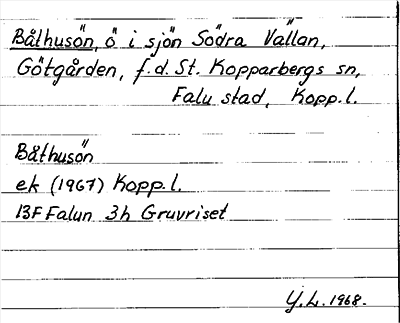 Båthusön, ö i sjön Södra Vällan,
Götgården, f.d. St. Kopparbergs sn,
Falu stad, Kopp.l.
Båthusön
ek (1967) Kopp.l.
13F Falun 3h Gruvriset
Y.L. 1968.